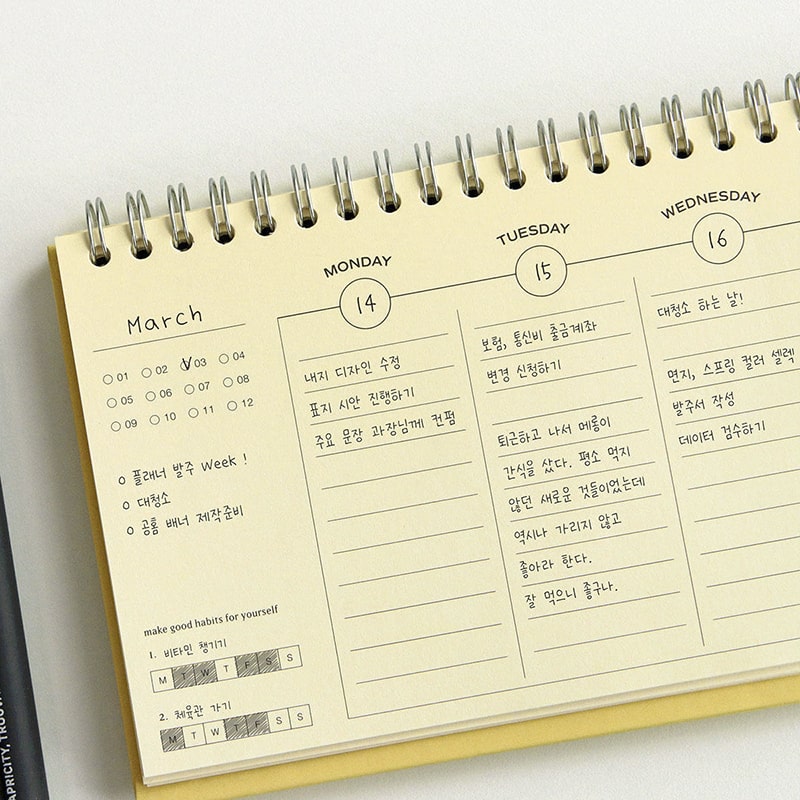 MONDAY
14
TUESDAY
15
WEDNESDAY
16
March
01 02 03 04
05 06 07 08
09 10 11 12
플래너 발주 Week !
대청소
공통 배너 제작준비
make good habits for yourself
1. 비타민 챙기기
M T W T F S S
2. 체육관 가기
M T W T F S S
내지 디자인 수정
표지 시안 진행하기
주요 문장 과장님께 컨펌
보험, 통신비 출금계좌
변경 신청하기
퇴근하고 나서 메롱이
간식을 샀다. 평소 먹지
않던 새로운 것들이었는데
역시나 가리지 않고
좋아라 한다.
잘 먹으니 좋구나.
대청소 하는 날!
면지, 스프링 컬러 셀렉
발주서 작성
데이터 검수하기
APRICITY, TROUV